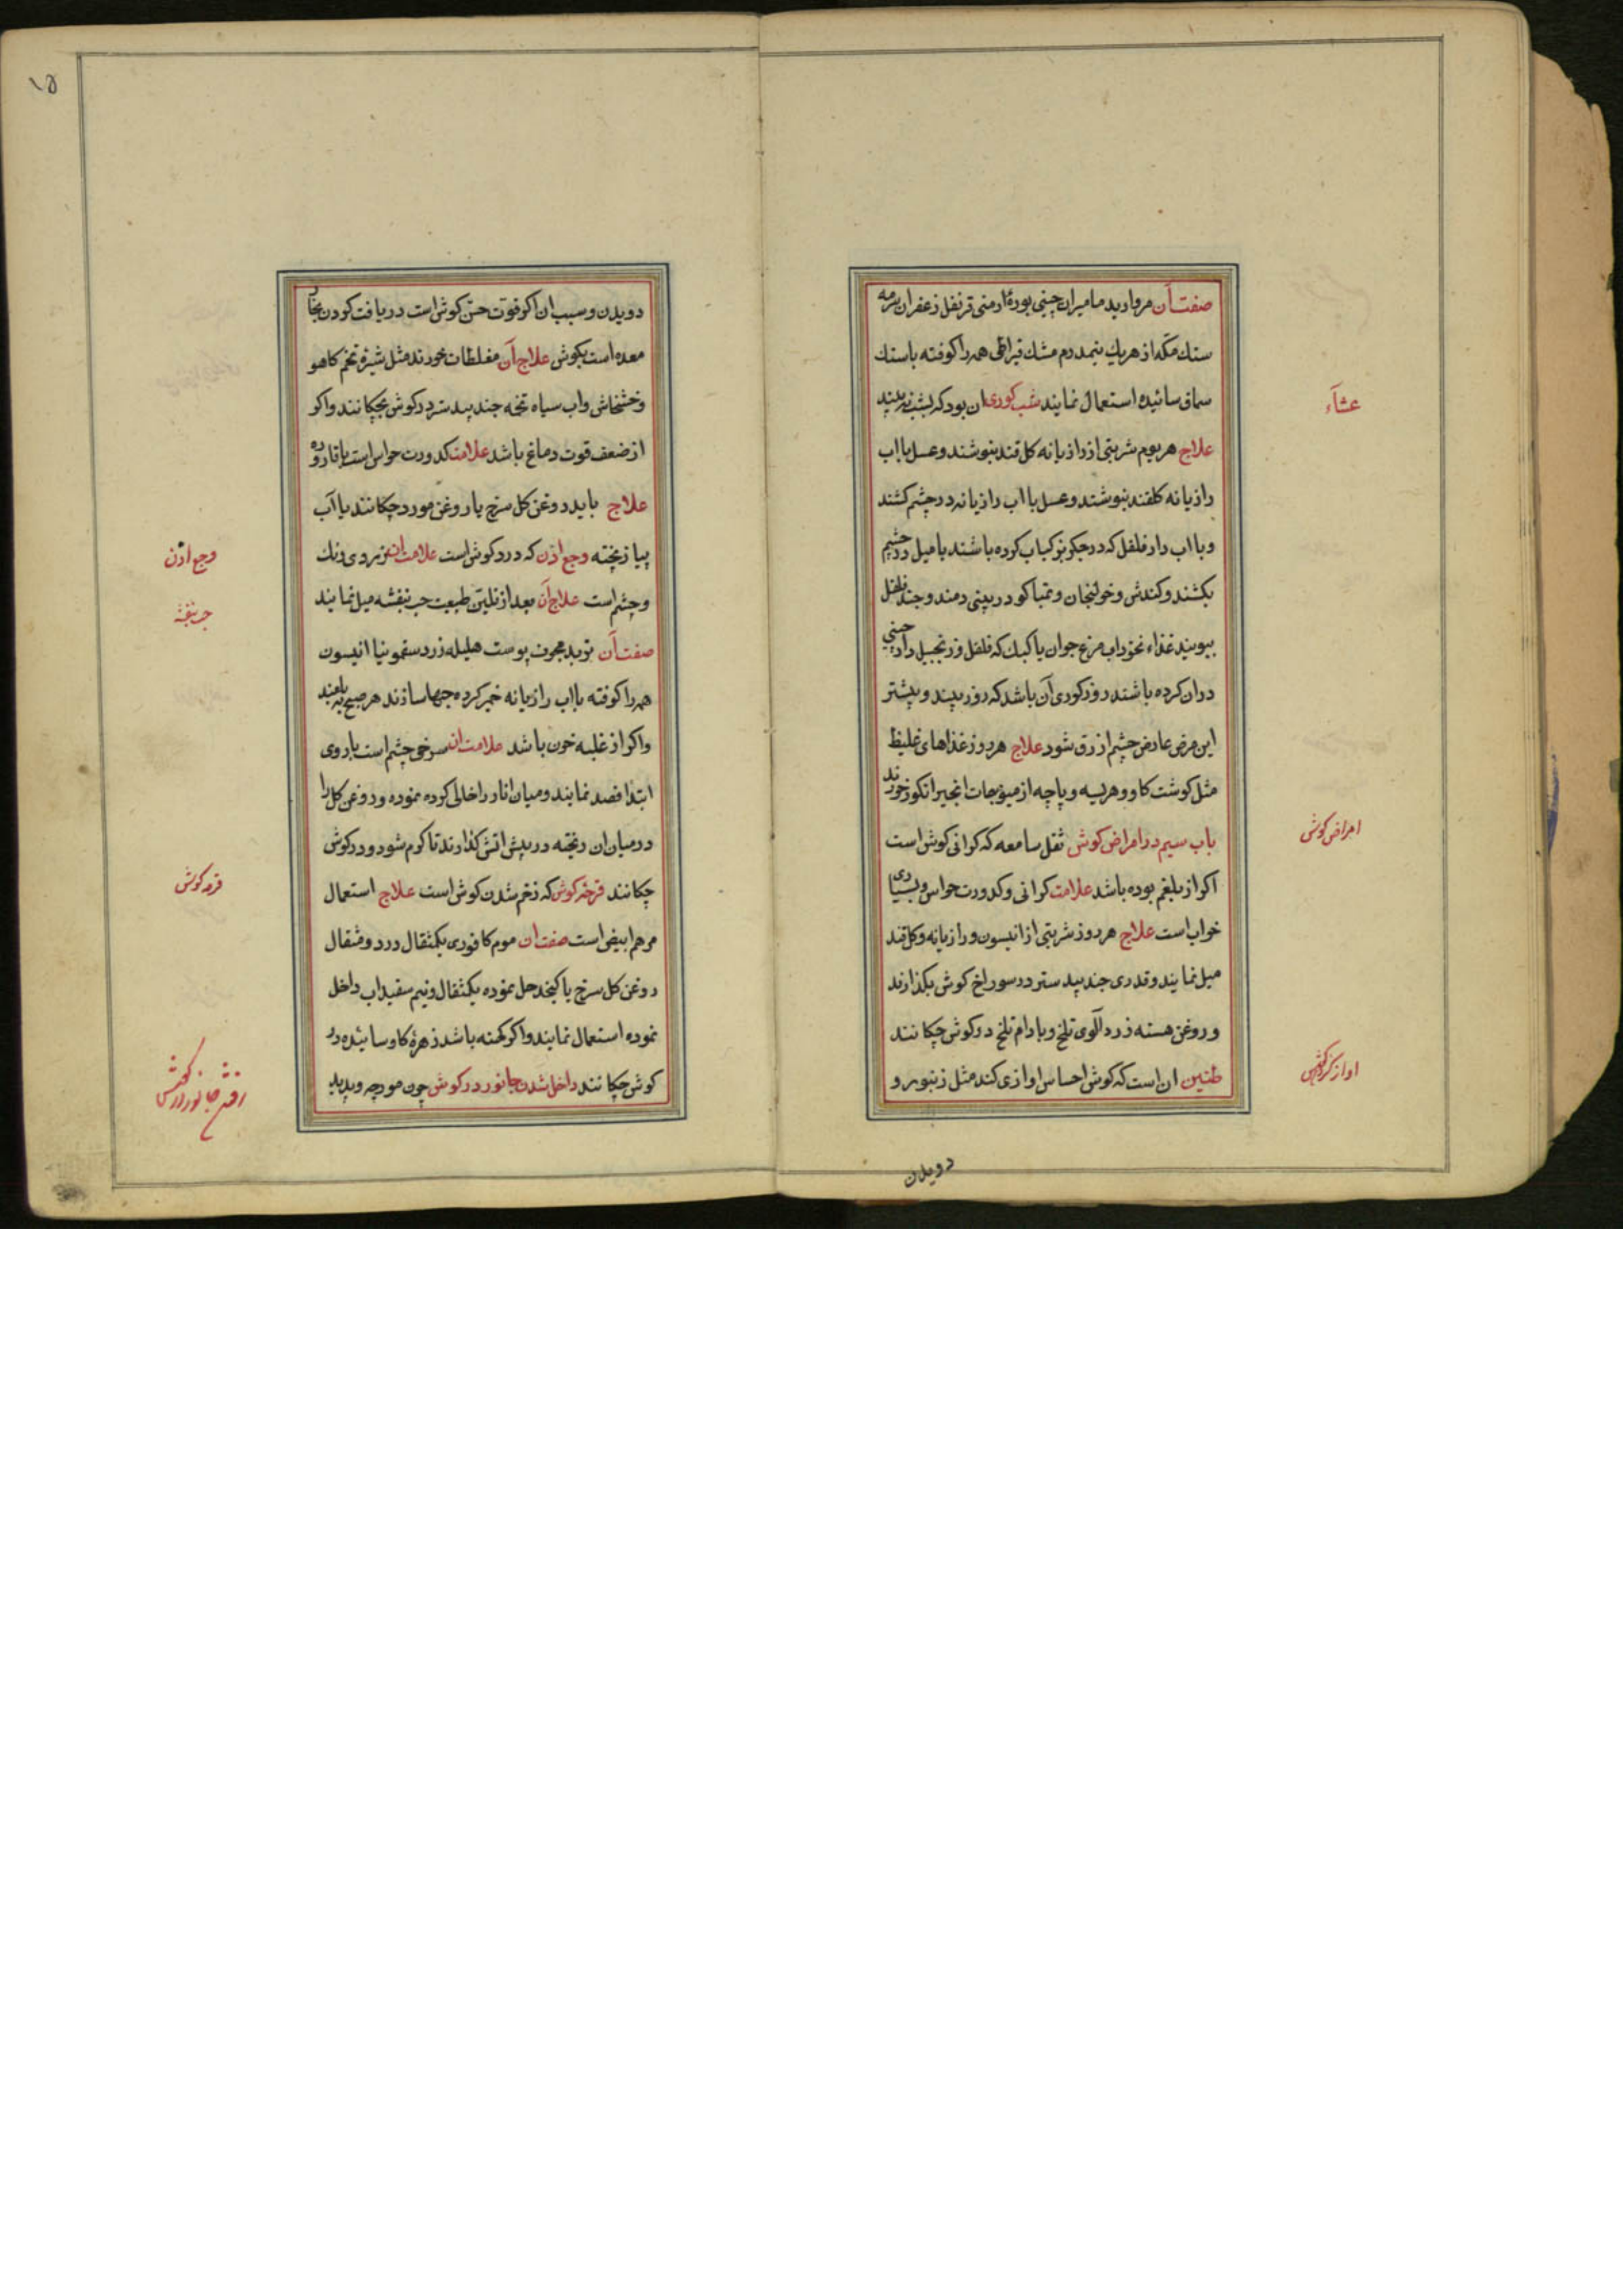 صفت آن مروارید مامیران چینی بوره ارمنی قرنفل زعفران سرمه
سنك مكه از هریك نیمدرم مشك قیراطی همه را کوفته باسنك
سماق سائیده استعمال نمایند شب کوری ان بود که بشب نه بیند
عشآء
علاج هر یوم شربتی از رازیانه کل قند بنوشند وعسل با اب
رازیانه کلقند بنوشند وعسل با اب رازیانه در چشم کشند
وبا اب دار فلفل که در جکر بز کباب کرده باشند با میل در چشم
بکشند وکندش وخولنجان وتمباکو در بینی دمند وچند فلفل
ببویند غذاء نخوداب مرغ جوان یا کبك که فلفل وزنجبیل دارچینی
دران کرده باشند روزکوری آن باشد که روز نبیند وبیشتر
این مرض عارض چشم ازرق شود علاج هر روز غذاهای غلیظ
مثل کوشت کاو وهریسه وپاچه از میوجات انجیر انکور خورند
امراض کوش
باب سیم در امراض کوش ثقل سامعه که کرانی کوش است
اکر از بلغم بوده باشد علامت کرانی وکدورت حواس وبسیاری
خواب است علاج هر روز شربتی از انیسون ورازیانه وکلقند
میل نمایند وقدری جند بیدستر در سوراخ کوش بکذارند
وروغن هسته زردالوی تلخ وبادام تلخ در کوش چکانند
طنین ان است که کوش احساس اوازی کند مثل زنبور و
اواز کردن کوش
دویدن
۱۵
دویدن وسبب ان اکر قوت حس کوش است دریافت کردن بخار
معده است بکوش علاج آن مغلظات خورند مثل شیره تخم کاهو
وخشخاش واب سیاه تخمه جند بیدستر در کوش بچکانند واکر
از ضعف قوت دماغ باشد علامت کدورت حواس است با قاروره
علاج باید روغن کل سرخ یا روغن مورد چکانند یا آب
پیاز پخته وجع اذن که درد کوش است علامت ان زردی رنك
وجع اذن
وچشم است علاج آن بعد از تلیین طبیعت حب بنفشه میل نمایند
حب بنفشه
صفت آن تربد مجوف پوست هلیله زرد سقمونیا انیسون
همه را کوفته با اب رازیانه خمیر کرده حبها سازند هر صبح بلعند
واکر از غلبه خون باشد علامت ان سرخی چشم است یا روی
ابتدا فصد نمایند ومیان انار را خالی کرده نموده وروغن کل را
درمیان ان ریخته در پیش اتش کذارند تا کرم شود ودر کوش
چکانند قرحه کوش که زخم شدن کوش است علاج استعمال
قرحه کوش
مرهم ابیض است صفت ان موم کافوری یکمثقال در دو مثقال
روغن کل سرخ یا کنجد حل نموده یکمثقال ونیم سفیداب داخل
نموده استعمال نمایند واکر کهنه باشد زهره کاو سائیده در
کوش چکانند داخل شدن جانور در کوش چون مورچه وپدید
رفتن جانور در کوش